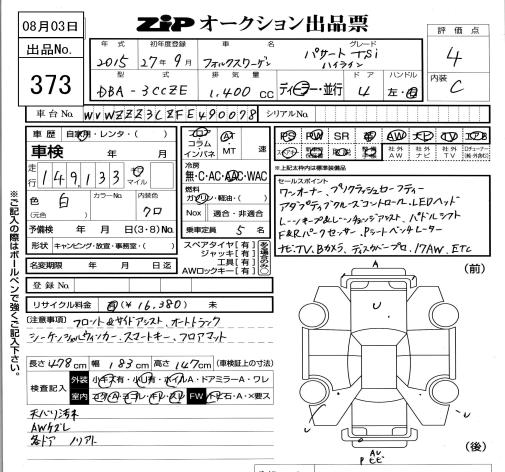 08月03日
ZIP オークション出品票
出品No.
373
評価点
4
内装
C
年式 初年度登録 車名 グレード
2015 27年9月 フォルクスワーゲン パサート TSi ハイライン
型式 排気量 ドア ハンドル
DBA-3CCZE 1.400 CC ディーラー・並行 4 左・右
車台No. WVWZZZ3CZFE490078 シリアルNo.
車歴 自家用・レンタ・( )
車検 年 月
走行 149,133 キロ マイル
色 白 カラーNo. 内装色 クロ
(元色)
予備検 年 月 日(3・8)No.
形状 キャンピング・放宣・事務室・( )
名変期限 年 月 日
フロア コラム インパネ
AT MT 速
冷房
無・C・AC・AAC・WAC
燃料
ガソリン・軽油・( )
Nox 適合・非適合
乗車定員 5 名
スペアタイヤ[有]
ジャッキ[有]
工具[有]
AWロックキー[有]
PS PW SR 革 AW ナビ TV エアB
社外AW 社外ナビ 社外TV
*上記太枠内は標準装備品
セールスポイント
ワンオーナー、プリクラッシュセーフティー
アダプティブクルーズコントロール、LEDヘッド
レーンキープ&レーンチェンジアシスト、パドルシフト
F&Rパークセンサー、Aシートベンチレーター
ナビ、TV、Bカメラ、ディスカバープロ、17AW、ETC
登録No.
リサイクル料金 有(¥16,380) 未
[注意事項] フロント&サイドアシスト、オートトランク
シーケンシャルウィンカー、スマートキー、フロアマット
長さ 478cm 幅 183cm 高さ 147cm (車検証上の寸法)
検査記入 外装 小キズ有・小U有・ホイルA・ドアミラーA・ワレ
室内 コゲ・A・ヨゴレ・キレ・スレ FW 飛石・A・X要ス
天バリ汚れ
AWキズレ
各ドア ノリアト
※ご記入の際はボールペンで強くご記入下さい。
(前)
A
U
(後)